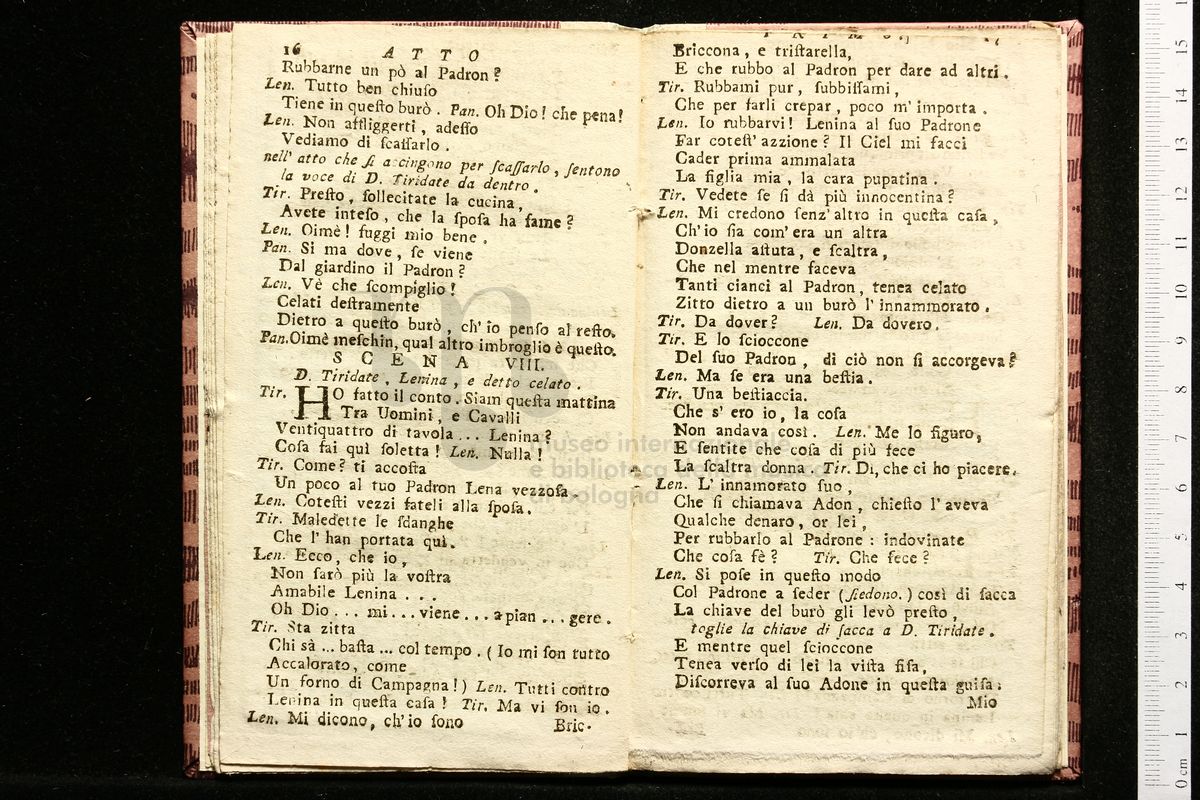 16 ATTO
Rubbarne un pò al Padron?
Len. Tutto ben chiuſo
Tiene in queſto burò. Pan. Oh Dio! che pena!
Len. Non affliggerti, adeſſo
Vediamo di ſcaſſarlo.
nell' atto che ſi accingono per ſcaſſarlo, ſentono
la voce di D. Tiridate da dentro.
Tir. Preſto, ſollecitate la cucina,
Avete inteſo, che la ſpoſa ha fame?
Len. Oimè! fuggi mio bene.
Pan. Si ma dove, ſe viene
Dal giardino il Padron?
Len. Vè che ſcompiglio!
Celati deſtramente
Dietro a queſto burò, ch' io penſo al reſto.
Pan. Oimè meſchin, qual altro imbroglio è queſto.
SCENA VIII.
D. Tiridate, Lenina, e detto celato.
Tir. HO fatto il conto. Siam queſta mattina
Tra Uomini, e Cavalli
Ventiquattro di tavola... Lenina?
Coſa fai quì ſoletta! Len. Nulla!
Tir. Come? ti accoſta
Un poco al tuo Padron Lena vezzoſa.
Len. Coteſti vezzi fateli alla ſpoſa.
Tir. Maledette le ſdanghe
Che l' han portata quì.
Len. Ecco, che io,
Non ſarò più la voſtra
Amabile Lenina...
Oh Dio... mi... viene... a pian... gere.
Tir. Sta zitta
Chi sà... baſta... col tempo. (Io mi ſon tutto
Accalorato, come
Un forno di Campagna!) Len. Tutti contro
Lenina in queſta caſa! Tir. Ma vi ſon io.
Len. Mi dicono, ch' io ſono
Bric-
Briccona, e triſtarella,
E che rubbo al Padron per dare ad altri.
Tir. Rubbami pur, ſubbiſſami,
Che per farli crepar, poco m' importa.
Len. Io rubbarvi! Lenina al ſuo Padrone
Far coteſt' azzione? Il Ciel mi facci
Cader prima ammalata
La figlia mia, la cara pupatina.
Tir. Vedete ſe ſi dà più innocentina?
Len. Mi credono ſenz' altro in queſta caſa,
Ch' io ſia com' era un altra
Donzella aſtuta, e ſcaltra,
Che nel mentre faceva
Tanti cianci al Padron, tenea celato
Zitto dietro a un burò l' innammorato.
Tir. Da dover? Len. Da dovero.
Tir. E lo ſcioccone
Del ſuo Padron, di ciò non ſi accorgeva?
Len. Ma ſe era una beſtia.
Tir. Una beſtiaccia.
Che s' ero io, la coſa
Non andava così. Len. Me lo figuro,
E ſentite che coſa di più fece
La ſcaltra donna. Tir. Di, che ci ho piacere.
Len. L' innamorato ſuo,
Che ſi chiamava Adon, chieſto l' aveva
Qualche denaro, or lei,
Per rubbarlo al Padrone: indovinate
Che coſa fè? Tir. Che fece?
Len. Si poſe in queſto modo
Col Padrone a ſeder (ſiedono.) così di ſacca
La chiave del burò gli levò preſto,
toglie la chiave di ſacca a D. Tiridate.
E mentre quel ſcioccone
Tenea verſo di lei la viſta fiſa,
Diſcorreva al ſuo Adone in queſta guiſa.
Mio
museo internazionale
e biblioteca della musica
di bologna